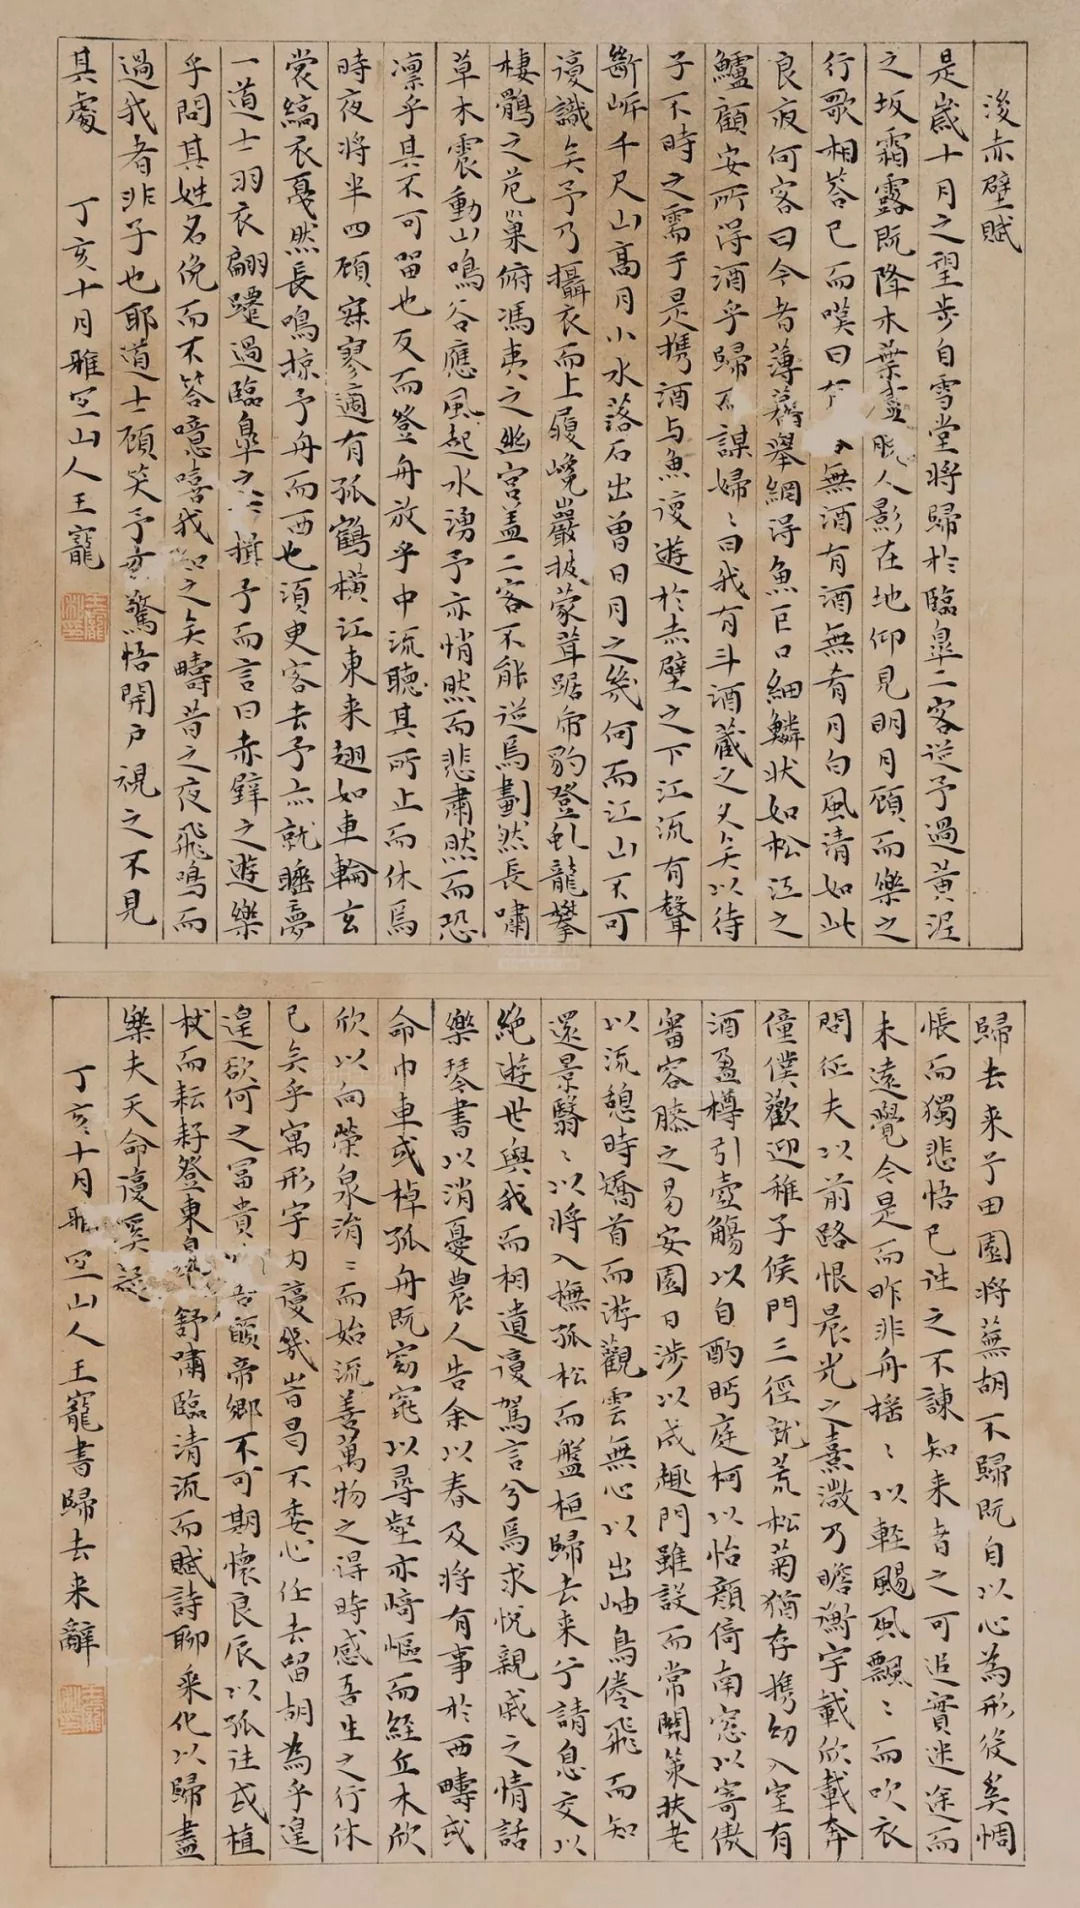 後赤壁賦
是歲十月之望步自雪堂將歸於臨皋二客從予過黃泥
之坂霜露既降木葉盡脫人影在地仰見明月顧而樂之
行歌相答已而嘆曰有無酒有酒無肴月白風清如此
良夜何客曰今者薄暮舉網得魚巨口細鱗狀如松江之
鱸顧安所得酒乎歸而謀婦〻曰我有斗酒藏之久矣以待
子不時之需于是携酒与魚復遊於赤壁之下江流有聲
斷岸千尺山高月小水落石出曾日月之幾何而江山不可
復識矣予乃攝衣而上履巉巖披蒙茸踞虎豹登虬龍攀
棲鶻之危巢俯馮夷之幽宮盖二客不能從焉劃然長嘯
草木震動山鳴谷應風起水湧予亦悄然而悲肅然而恐
凛乎其不可留也反而登舟放乎中流聽其所止而休焉
時夜将半四顧寂寥適有孤鶴橫江東来翅如車輪玄
裳縞衣戛然長鳴掠予舟而西也須臾客去予亦就睡夢
一道士羽衣翩躚過臨皐之揖予而言曰赤壁之遊樂
乎問其姓名俛而不答噫嘻我知之矣疇昔之夜飛鳴而
過我者非子也耶道士顧笑予亦驚悟開户視之不見
其處 丁亥十月雅宜山人王寵
歸去来兮田園将蕪胡不歸既自以心為形役奚惆
悵而獨悲悟已往之不諫知来者之可追實迷途而
未遠覺今是而昨非舟摇〻以軽颺風飄〻而吹衣
問征夫以前路恨晨光之熹微乃瞻衡宇載欣載奔
僮僕歡迎稚子侯門三徑就荒松菊猶存携幼入室有
酒盈樽引壺觴以自酌眄庭柯以怡顏倚南窓以寄傲
審容膝之易安園日涉以成趣門雖設而常關策扶老
以流憩時矯首而游觀雲無心以出岫鳥倦飛而知
還景翳〻以将入撫孤松而盤桓歸去来兮請息交以
絶遊世與我而相遺復駕言兮焉求悅親戚之情話
樂琴書以消憂農人告余以春及将有事於西疇或
命巾車或棹孤舟既窈窕以尋壑亦崎嶇而經丘木欣
欣以向榮泉涓〻而始流善萬物之得時感吾生之行休
已矣乎寓形宇内復幾時曷不委心任去留胡為乎遑
遑欲何之冨貴非吾願帝鄉不可期懷良辰以孤往或植
杖而耘耔登東皐舒嘯臨清流而賦詩聊乘化以歸盡
樂夫天命復奚疑
丁亥十月雅宜山人王寵書歸去来辭